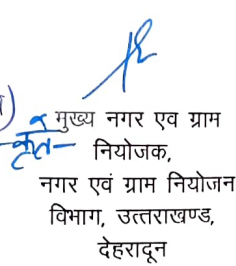 मुख्य नगर एव ग्राम
कृते नियोजक,
नगर एवं ग्राम नियोजन
विभाग, उत्तराखण्ड,
देहरादून